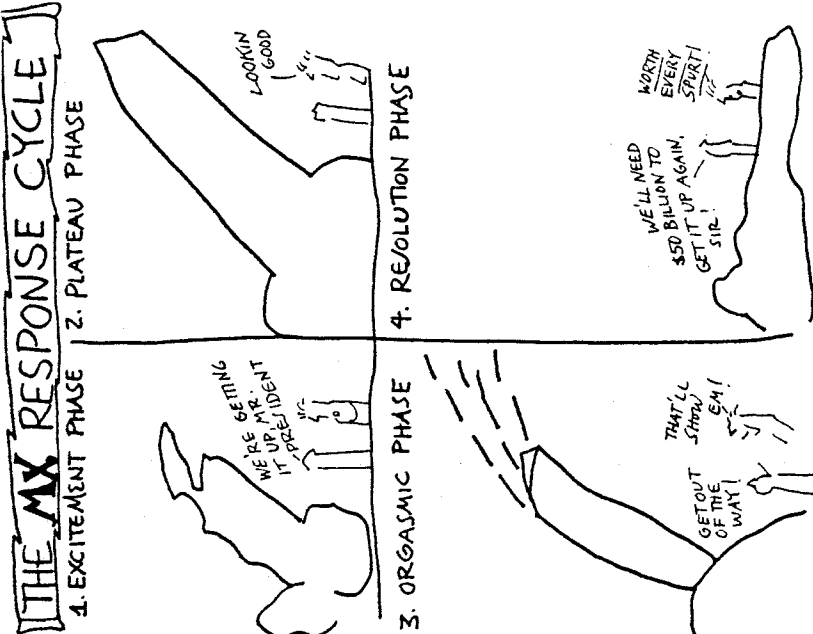 THE MX RESPONSE CYCLE
1. EXCITEMENT PHASE
WE'RE GETTING
IT UP, MR.
PRESIDENT
2. PLATEAU PHASE
LOOKIN
GOOD
3. ORGASMIC PHASE
GET OUT
OF THE
WAY!
THAT'LL
SHOW
EM!
4. RESOLUTION PHASE
WE'LL NEED
$50 BILLION TO
GET IT UP AGAIN,
SIR!
WORTH
EVERY
SPURT!